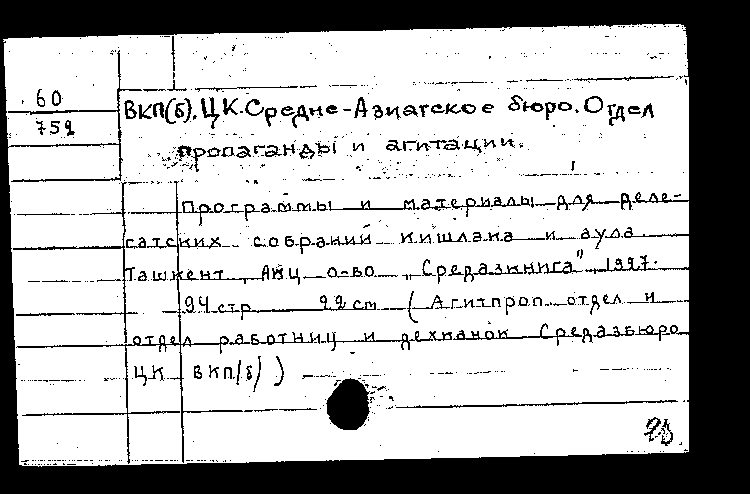 60
752
ВКП(б). ЦК. Средне-Азиатское бюро. Отдел
пропаганды и агитации.
Программы и материалы для деле-
гатских собраний кишлака и аула.
Ташкент, Акц. о-во „Средазкнига", 1927.
94 стр 22 см (Агитпроп отдел и
отдел работниц и дехканок Средазбюро
ЦК ВКП(б))